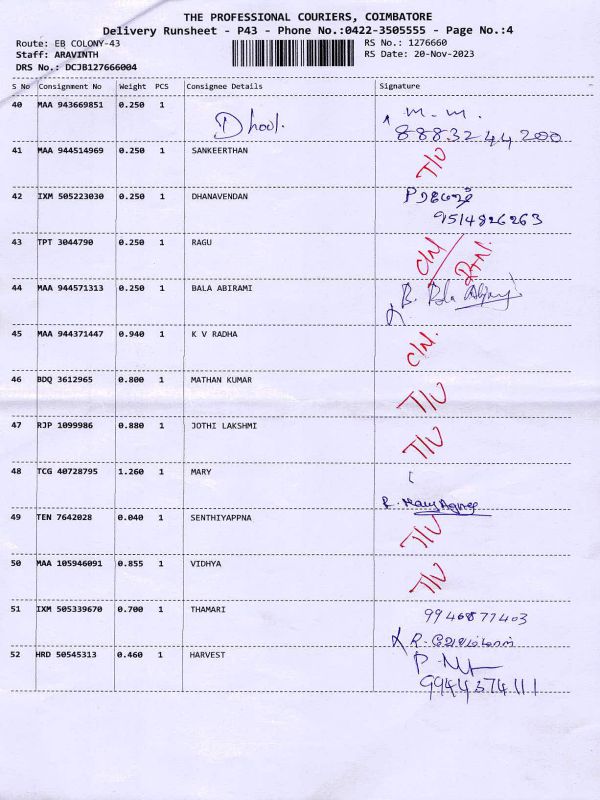 THE PROFESSIONAL COURIERS, COIMBATORE
Delivery Runsheet - P43 - Phone No.:0422-3505555 - Page No.:4
Route: EB COLONY-43 RS No.: 1276660
Staff: ARAVINTH RS Date: 20-Nov-2023
DRS No.: DCJB127666004
S No Consignment No Weight PCS Consignee Details Signature
40 MAA 943669851 0.250 1 Dhool. M. M.
8883244200
41 MAA 944514969 0.250 1 SANKEERTHAN T/U
42 IXM 505223030 0.250 1 DHANAVENDAN
9514826263
43 TPT 3044790 0.250 1 RAGU C/N
44 MAA 944571313 0.250 1 BALA ABIRAMI B. Bala
45 MAA 944371447 0.940 1 K V RADHA C/N.
46 BDQ 3612965 0.800 1 MATHAN KUMAR T/U
47 RJP 1099986 0.880 1 JOTHI LAKSHMI T/U
48 TCG 40728795 1.260 1 MARY
49 TEN 7642028 0.040 1 SENTHIYAPPNA T/U
50 MAA 105946091 0.855 1 VIDHYA T/U
51 IXM 505339670 0.700 1 THAMARI 9946877403
52 HRD 50545313 0.460 1 HARVEST
9944374111